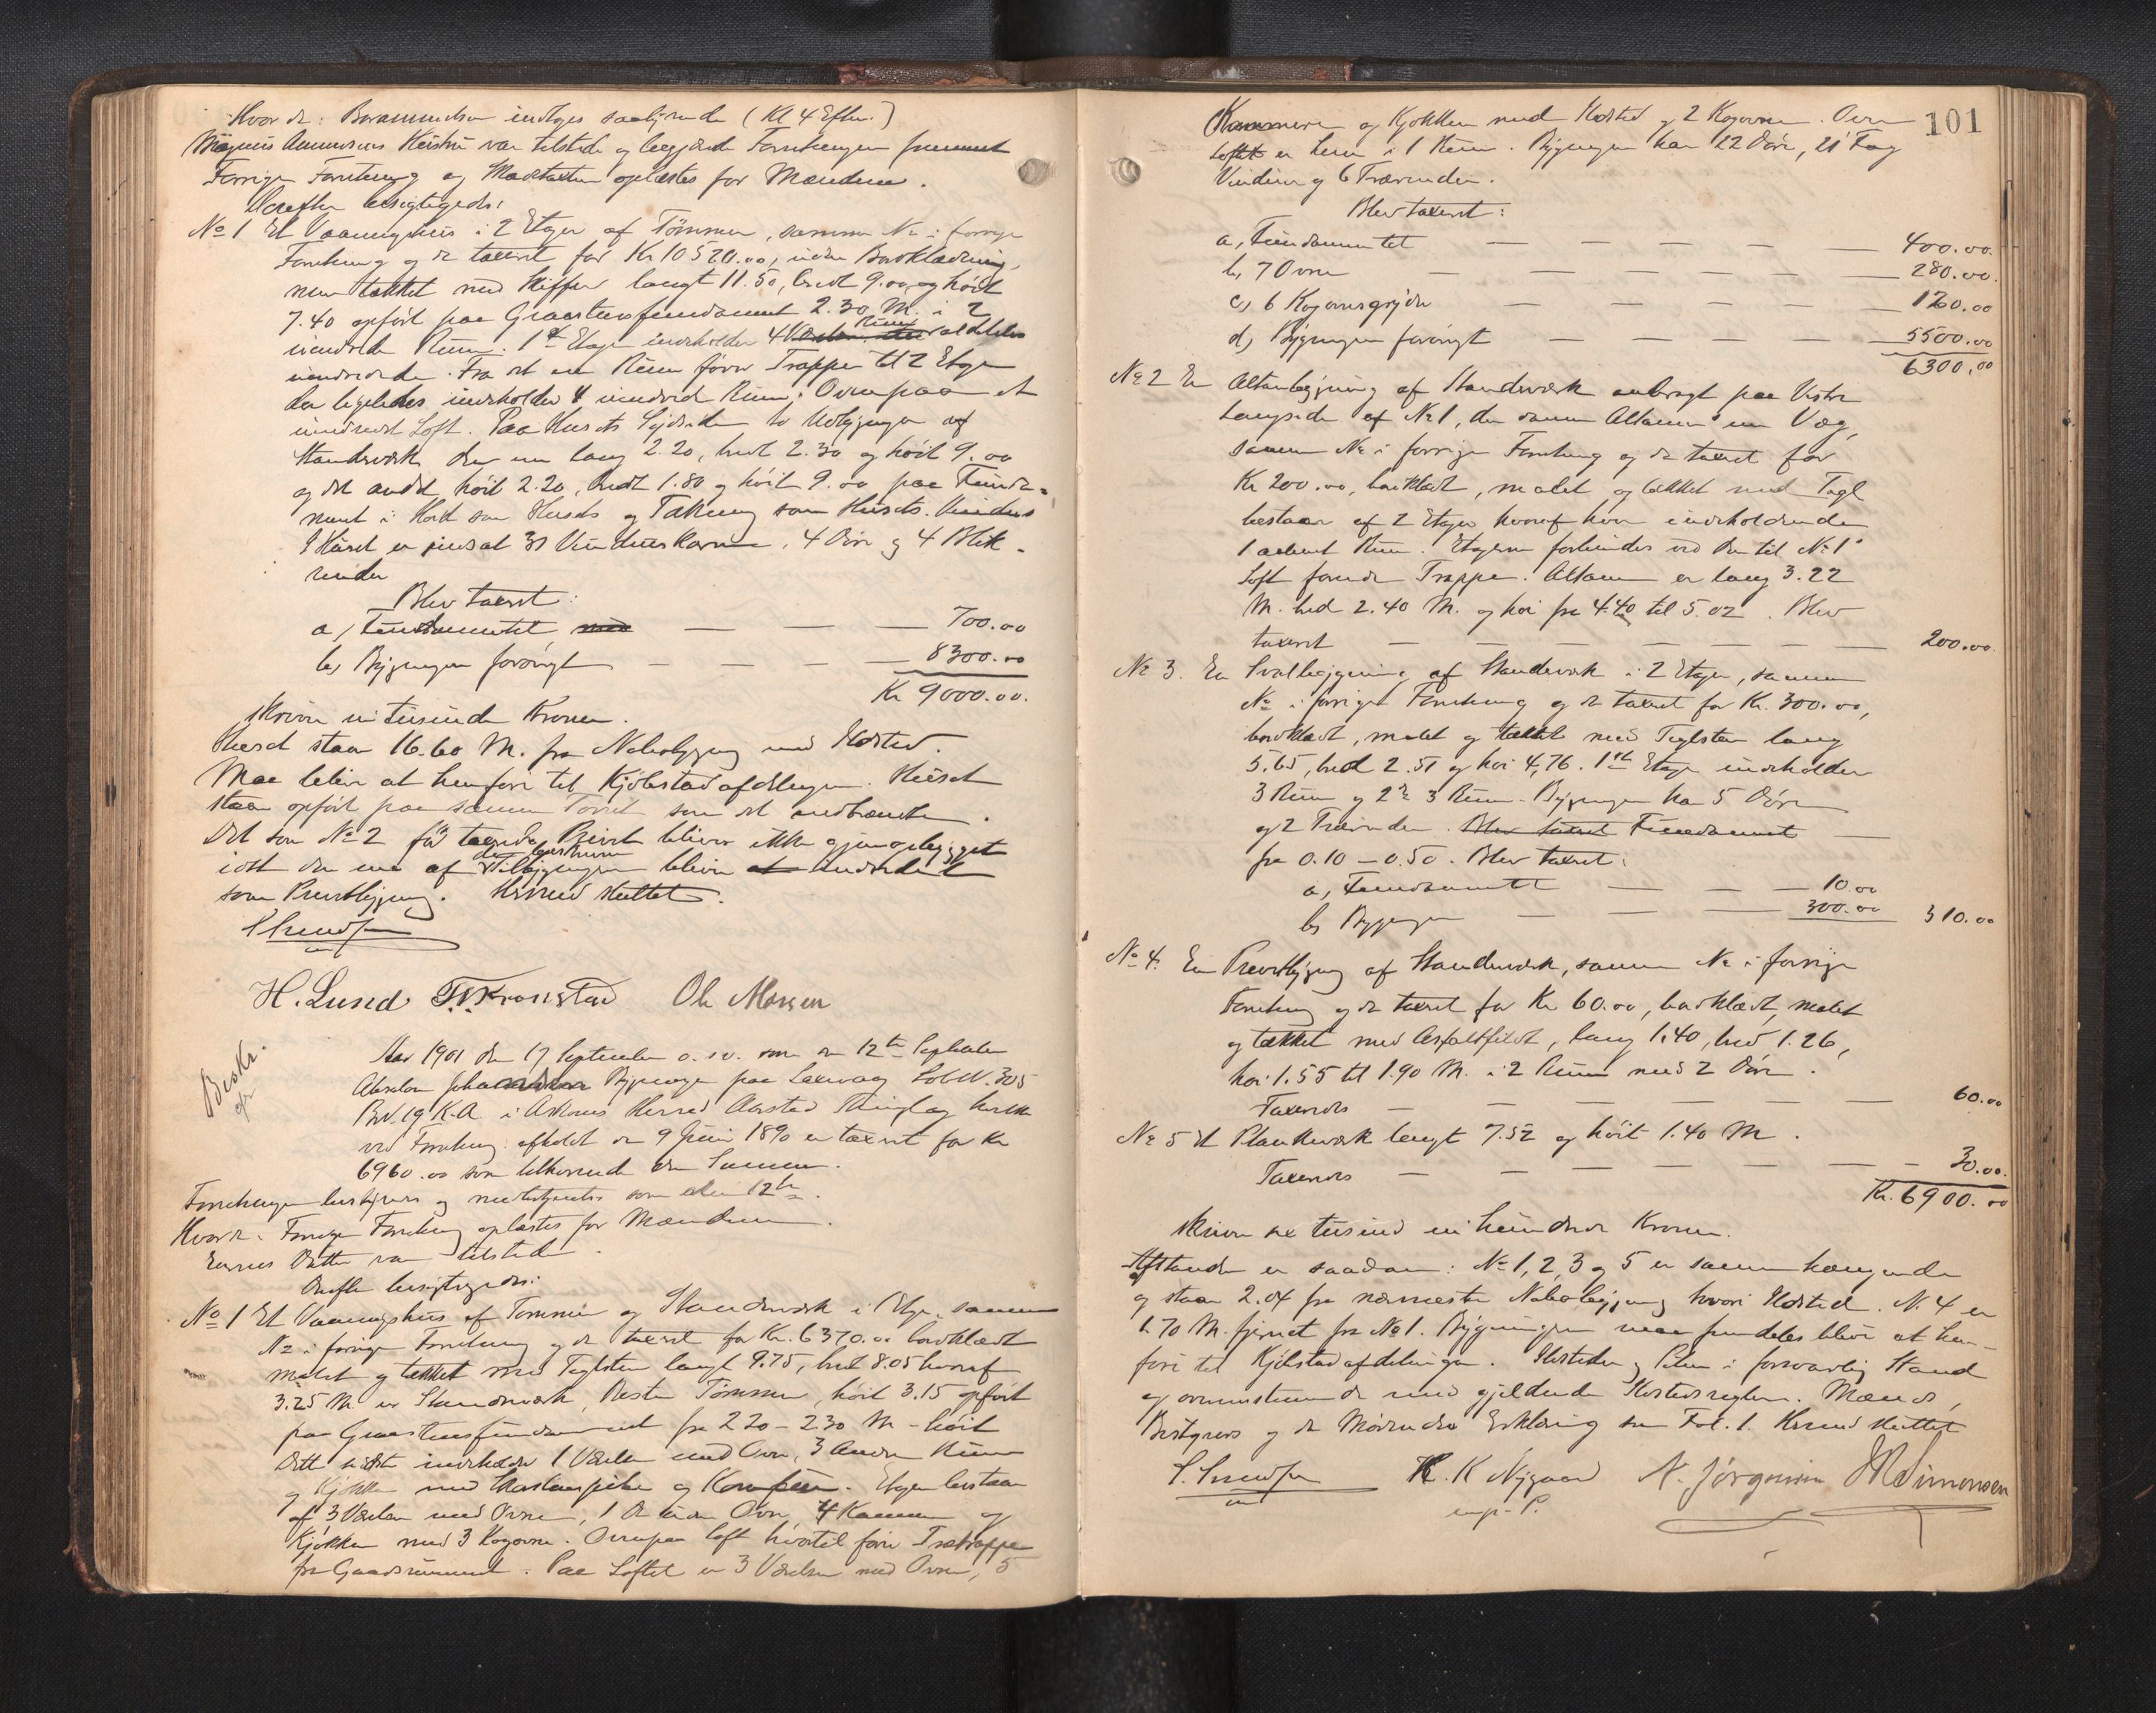 Hvor da: indtages saalydende (Kl 4 Efter.)
Magnus var tilstede og begjærte Forretningen fremmet
Forrige Forretning og oplæstes for Mændene.
Derefter besigtigedes:
No 1 Et Vaaningshus i 2 Etager af Tømmer, samme No i forrige
Forretning og da taxeret for Kr 10520.00, uden Bordklædning,
men tækket med Skiffer langt 11.50, bredt 9.00 og høit
7.40 opført paa Graastensfundament 2.30 M. i 2
indredede Rum. 1ste Etage indeholder 4 Rum
uindredede. Fra det ene Rum fører Trappe til 2 Etage
der ligeledes indeholder 4 uindred Rum. Ovenpaa et
uindredt Loft. Paa Husets Sydside to Udbygninger af
Standværk den ene lang 2.20, bredt 2.30 og høit 9.00
og det andet høit 2.20, bredt 1.80 og høit 9.00 paa Funda-
ment i Hord som Husets og Tækning som Husets.
I Huset er indsat 31 Vindueskarme, 4 Døre og 4 Blik-
render
Blev taxeret:
a, Fundamentet — — — 700.00
b, Bygningen forøvrigt — — — 8300.00
Kr 9000.00.
skriver ni tusinde Kroner.
Huset staar 16.60 M. fra Nabobygning med Ildsted.
Maa blive at henføre til Kjøbstadafdelingen. Huset
staar opført paa samme Tomt som det nedbrændte.
Det som No 2 før taxerede Privet bliver ikke gjenopbygget
idet den ene af Tilbygningen bliver indredet
som Privetbygning. Hermed sluttet.
H. Lund Ole Monsen
Beskr.
Aar 1901 den 17 September o. s. v. som den 12te September
Bygninger paa Laxevaag Lob. No. 305
Brd. 19 K.A i Askøens Herred Aarstad Thinglag hvilke
ved Forretning afholdt den 9 Juni 1890 er taxeret for Kr
6960.00 som tilhørende den Samme.
Forretningen bestyres og medbetjentes som den 12te.
Hvorda: Forrige Forretning oplæstes for Mændene.
Eierens Datter var tilstede.
Derefter besigtigedes:
No 1 Et Vaaningshus af Tømmer og Standværk i 1 Etage, samme
No i forrige Forretning og da taxeret for Kr. 6370.00 bordklædt
malet og tækket med Teglsten langt 9.75, bredt 8.05 hvoraf
3.25 M er Standværk, Resten Tømmer, høit 3.15 opført
paa Graastensfundament fra 2.20 – 2.30 M. høit
Dette sidste indeholder 1 Værelse med Ovn, 3 andre Rum
og Kjøkken med Skorstenspibe og Komfur. Etagen bestaar
af 3 Værelser med Ovne, 1 Do uden Ovn, 4 Kammere og
Kjøkken med 3 Kogeovne. Ovenpaa Loft hvortil fører Trætrappe
fra Gaardsrummet. Paa Loftet er 3 Værelser med Ovne, 5
101
Kammere og Kjøkken med Ildsted og 2 Kogeovne. Over
Loftet er Lem i 1 Rum. Bygningen har 22 Døre, 21 Fag
Vinduer og 6 Trærender.
Blev taxeret:
a, Fundamentet — — — — — 400.00.
b, 7 Ovne — — — — — 280.00.
c, 6 Kogeovnsgryder — — — — 120.00
d, Bygningen forøvrigt — — — — 5500.00
6300.00
No 2 En Altanbygning af Standværk anbragt paa Vestre
Langside af No 1, der danner Altanens ene Væg,
samme No i forrige Forretning og da taxeret for
Kr 200.00, bordklædt, malet og tækket med Tagl
bestaar af 2 Etager hvoraf hver indeholdende
1 aabent Rum. Etagerne forbindes ved den til No 1's
Loft førende Trappe. Altanen er lang 3.22
M. bred 2.40 M. og høi fra 4.40 til 5.02. Blev
taxeret — — — — — — 200.00.
No 3. En Svalbygning af Standværk i 2 Etager, samme
No i forrige Forretning og da taxeret for Kr. 300.00,
bordklædt, malet og tækket med Teglsten lang
5.65, bred 2.51 og høi 4.76. 1ste Etage indeholder
3 Rum og 2den 3 Rum. Bygningen har 5 Døre
og 2 Trærender. Blev taxeret Fundamentet —
fra 0.10 – 0.50. Blev taxeret:
a, Fundamentet — — — 10.00
b, Bygningen — — — 300.00 310.00
No 4. En Privetbygning af Standværk, samme No i forrige
Forretning og da taxeret for Kr 60.00, bordklædt, malet
og tækket med Asfaltfildt, lang 1.40, bred 1.26,
høi 1.55 til 1.90 M. i 2 Rum med 2 Døre.
Taxeredes — — — — — — 60.00
No 5 Et Plankeværk langt 7.52 og høit 1.40 M.
Taxeredes — — — — — — 30.00.
Kr. 6900.00
skriver sex tusind ni hundrede Kroner.
Afstanden er saadan: No 1, 2, 3 og 5 er sammenhængende
og staar 2.04 fra nærmeste Nabobygning hvori Ildsted. No 4 er
1.70 M. fjernet fra No 1. Bygningen maa fremdeles blive at hen-
føre til Kjøbstadafdelingen. Ildsteder og Piber i forsvarlig Stand
og overensstemmende med gjældende Ildstedsregler. Mænds,
Bestyrers og de Mødendes Erklæring som Fol. 1. Hermed sluttet
K. K Nygaard N. Jørgensen M Simonsen